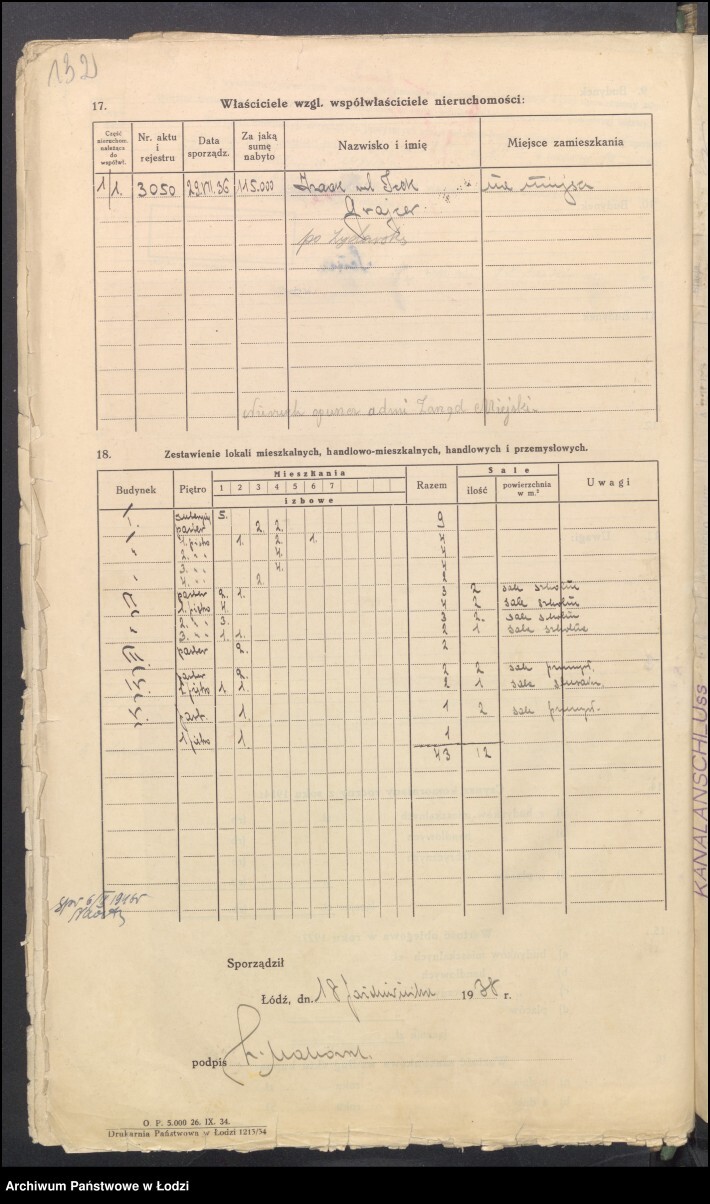 132
17. Właściciele wzgl. współwłaściciele nieruchomości:
Część nieruchom. należąca do współwł.
Nr. aktu i rejestru
Data sporządz.
Za jaką sumę nabyto
Nazwisko i imię
Miejsce zamieszkania
1/1. 3050 29.VII.36 115.000
na miejscu
Zarząd Miejski
18. Zestawienie lokali mieszkalnych, handlowo-mieszkalnych, handlowych i przemysłowych.
Budynek Piętro Mieszkania Razem Sale Uwagi
1 2 3 4 5 6 7 ilość powierzchnia w m.²
izbowe
5. 9
parter 2. 2.
1. piętro 1. 2. 1. 4
2. " " 4. 4
3. " " 4. 4
4. " " 2. 2
parter 2. 1. 3 2 sale szkolne
1. piętro 4. 4 2 sale szkolne
2. " " 3. 3 2. sale szkolne
3. " " 1. 1. 2 1 sala szkolna
parter 2. 2
parter 2. 2 2 sale przemysł.
1 piętro 1 1. 2 1
part. 1. 1 2 sale przemysł.
1 piętro 1. 1
43 12
KANALANSCHLUss
Sporządził
Łódź, dn. 18 października 1938 r.
podpis
O P. 5.000 26. IX. 34.
Drukarnia Państwowa w Łodzi 1213/34
Archiwum Państwowe w Łodzi